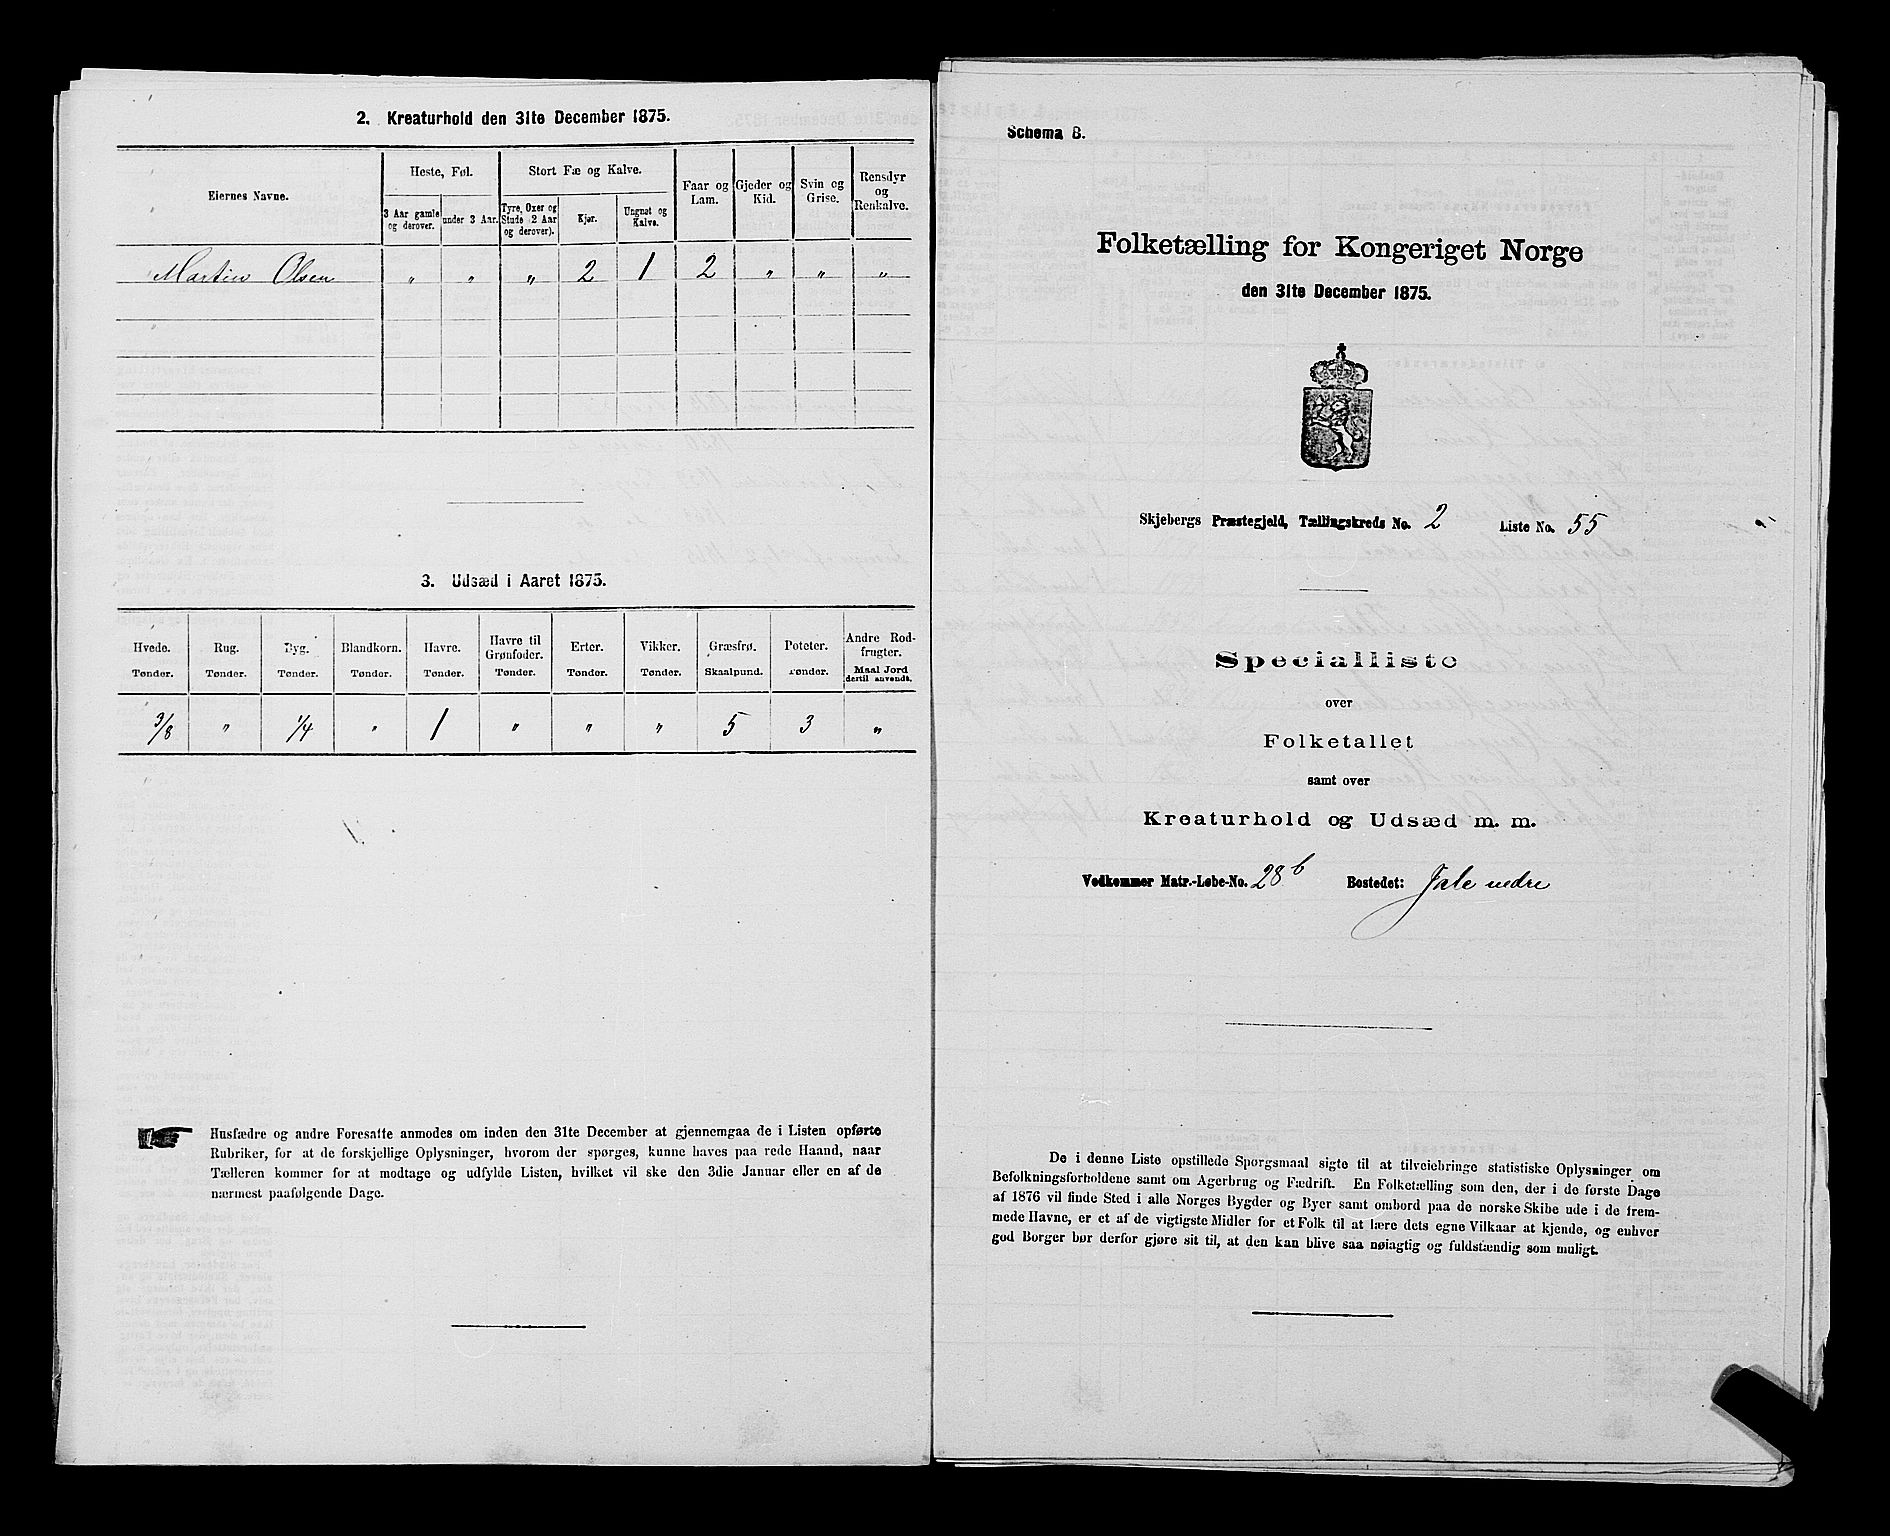 2. Kreaturhold den 31te December 1875.
Eiernes Navne.
Heste, Føl.
Stort Fæ og Kalve.
Faar og Lam.
Gjeder og Kid.
Svin og Grise.
Rensdyr og Renkalve.
3 Aar gamle og derover.
under 3 Aar.
Tyre, Oxer og Stude (2 Aar og derover).
Kjør.
Ungnøt og Kalve.
Martin Olsen " " " 2 1 2 " " "
3. Udsæd i Aaret 1875.
Hvede. Rug. Byg. Blandkorn. Havre. Havre til Grønfoder. Erter. Vikker. Græsfrø. Poteter. Andre Rodfrugter.
Tønder. Tønder. Tønder. Tønder. Tønder. Tønder. Tønder. Tønder. Skaalpund. Tønder. Maal Jord dertil anvendt.
3/8 " 1/4 " 1 " " " 5 3 "
Husfædre og andre Foresatte anmodes om inden den 31te December at gjennemgaa de i Listen opførte
Rubriker, for at de forskjellige Oplysninger, hvorom der spørges, kunne haves paa rede Haand, naar
Tælleren kommer for at modtage og udfylde Listen, hvilket vil ske den 3die Januar eller en af de
nærmest paafølgende Dage.
Schema B.
Folketælling for Kongeriget Norge
den 31te December 1875.
Skjebergs Præstegjeld, Tællingskreds No. 2 Liste No. 55
Specialliste
over
Folketallet
samt over
Kreaturhold og Udsæd m. m.
Vedkommer Matr.-Løbe-No. 28b Bostedet: Jale nedre
De i denne Liste opstillede Spørgsmaal sigte til at tilveiebringe statistiske Oplysninger om
Befolkningsforholdene samt om Agerbrug og Fædrift. En Folketælling som den, der i de første Dage
af 1876 vil finde Sted i alle Norges Bygder og Byer samt ombord paa de norske Skibe ude i de frem-
mede Havne, er et af de vigtigste Midler for et Folk til at lære dets egne Vilkaar at kjende, og enhver
god Borger bør derfor gjøre sit til, at den kan blive saa nøiagtig og fuldstændig som muligt.